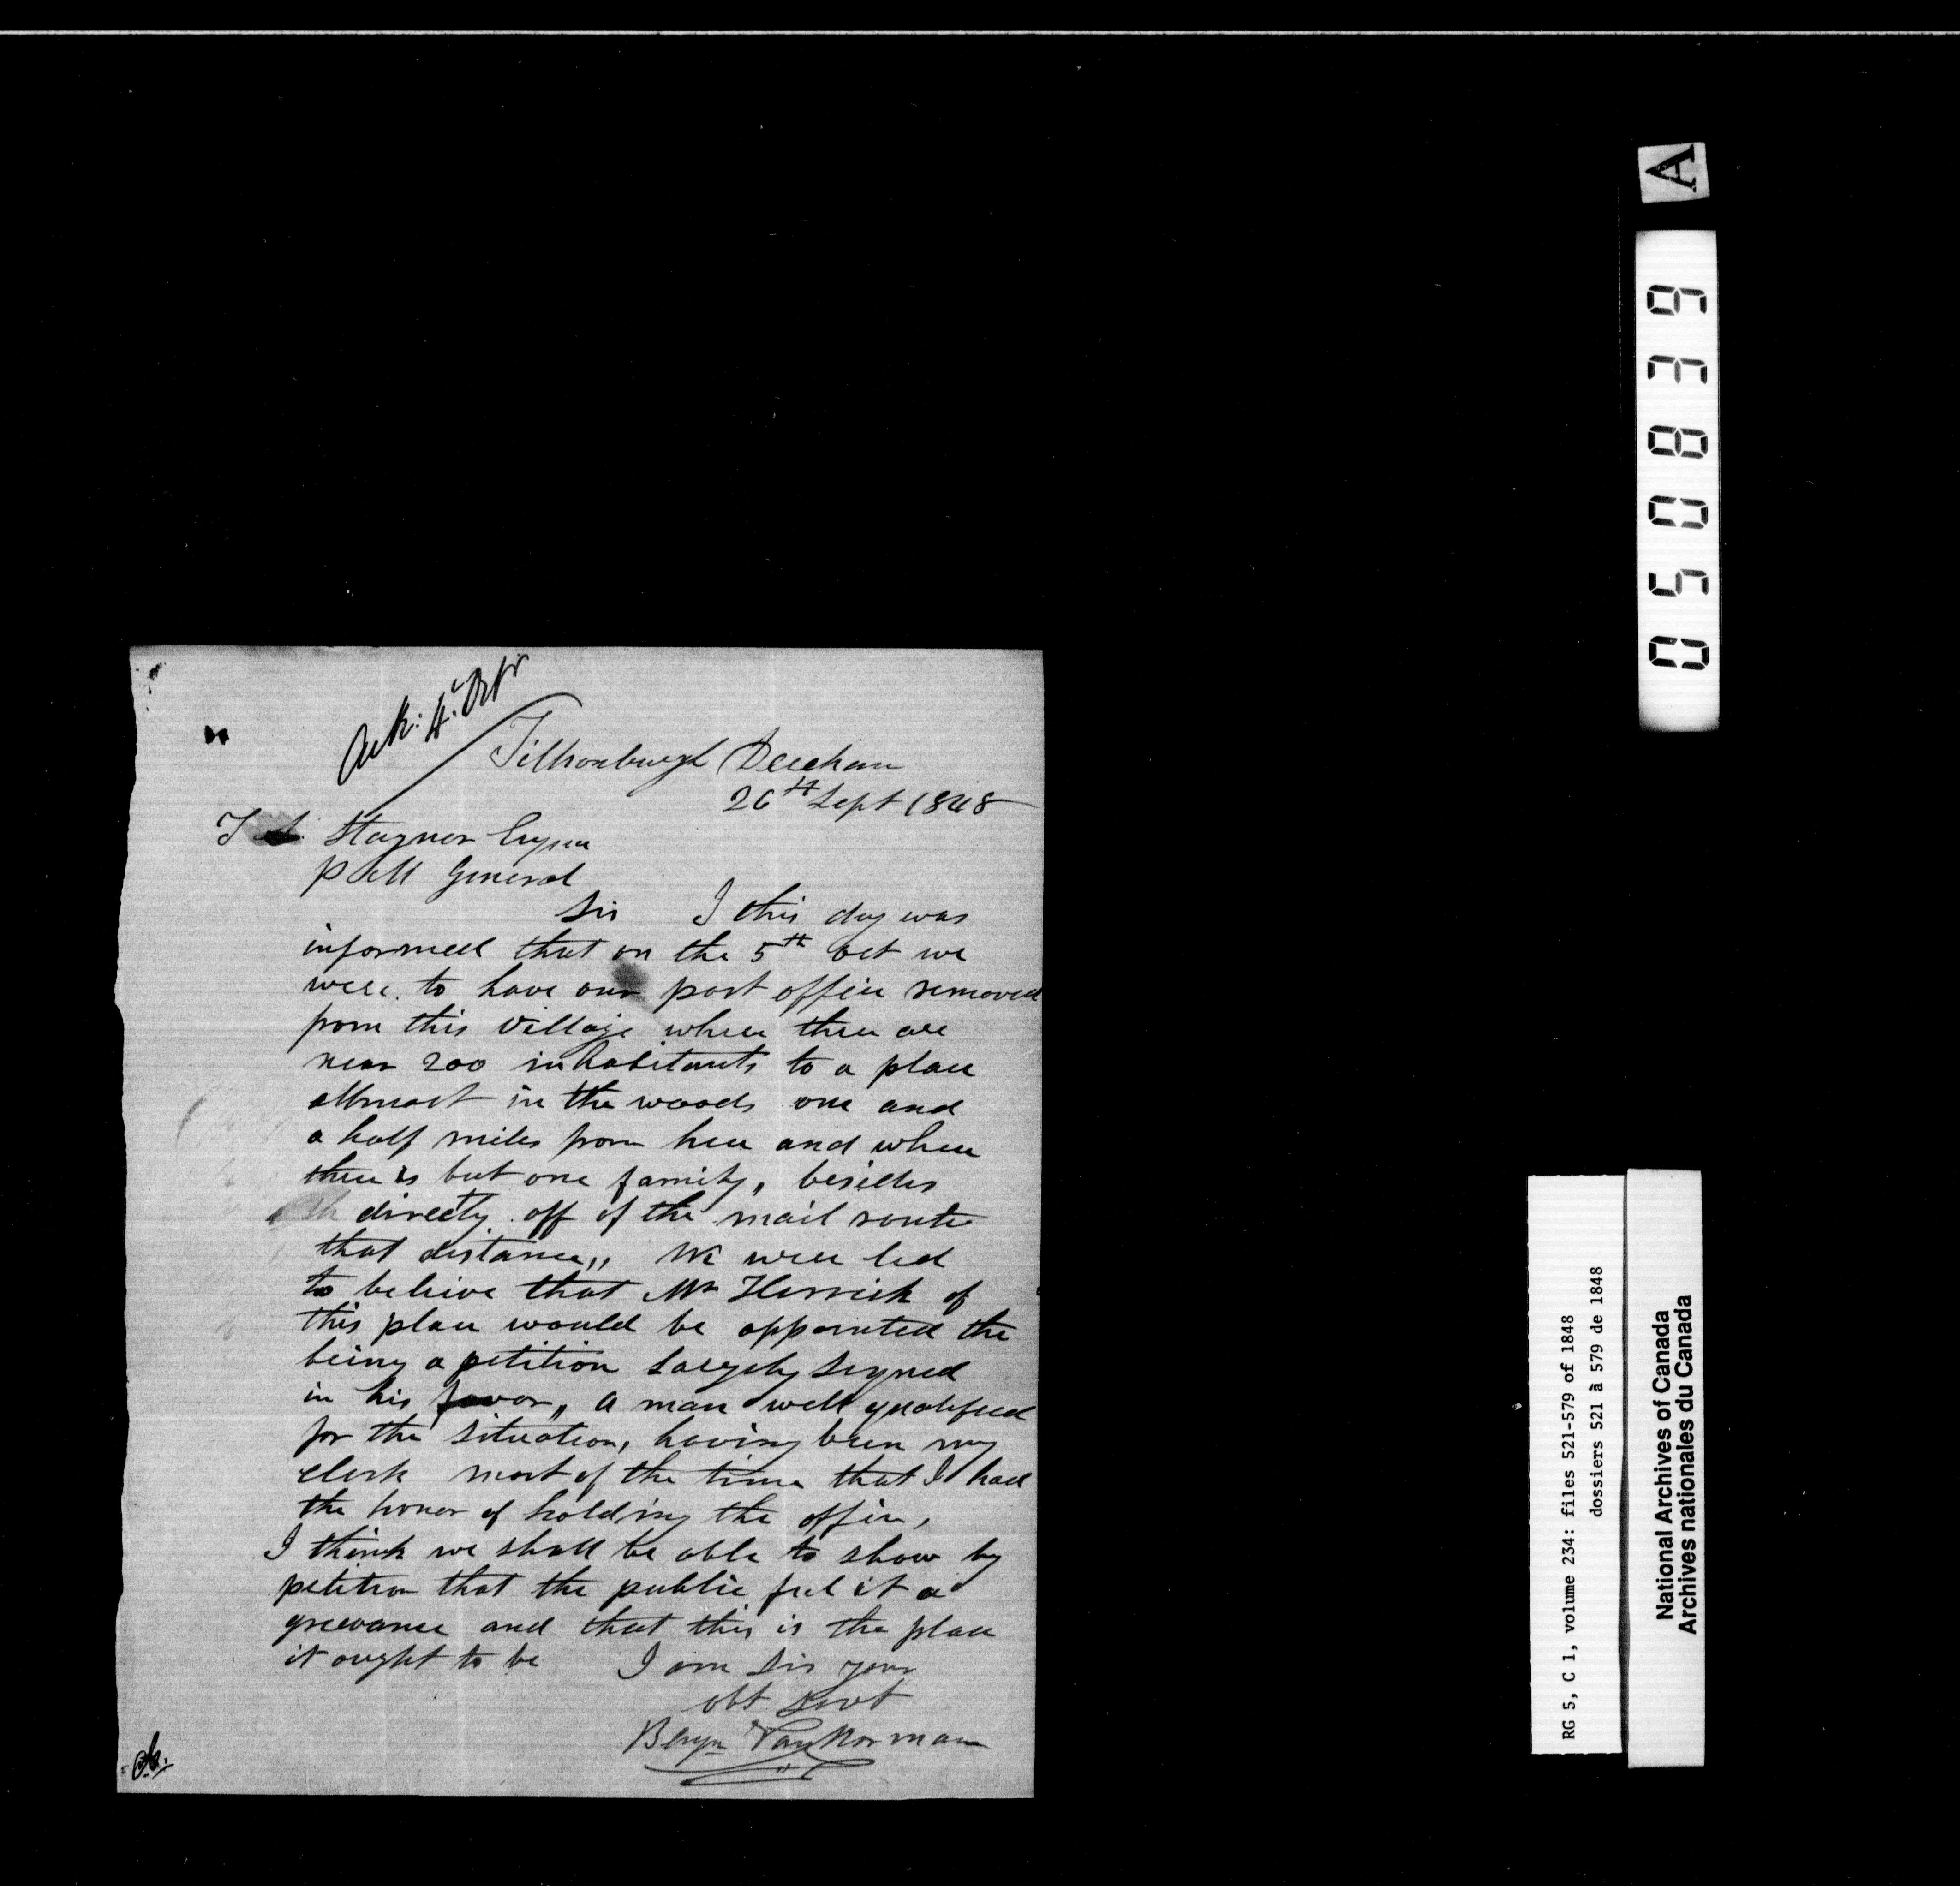 Ack: 4. Octr
Tillsonburgh Dereham
26th Sept 1848
T A. Stayner Esquire
P M General
Sir I this day was
informed that on the 5th oct we
were to have our post office removed
from this village where there are
near 200 inhabitants to a place
allmost in the woods one and
a half miles from here and where
there is but one family, besides
directly off of the mail route
that distance,, We were led
to beleive that Mr Herrick of
this place would be appointed the
being a petition largely signed
in his favor,, a man well qualified
for the situation, having been my
clerk most of the time that I had
the honor of holding the office,
I think we shall be able to show by
petition that the public feel it a
greevance and that this is the place
it ought to be I am Sir your
obt Servt
Benjn VanNorman
A
050839
RG 5, C 1, volume 234: files 521-579 of 1848
dossiers 521 à 579 de 1848
National Archives of Canada
Archives nationales du Canada